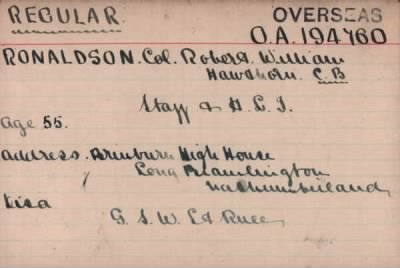 REGULAR.
OVERSEAS
O.A. 194760
RONALDSON. Col. Robert William
Hawthorn. C.B
Staff & H.L.I.
age 55.
address. Brinkburn High House
Long Framlington
Northumberland
G. S. W. Lt Knee